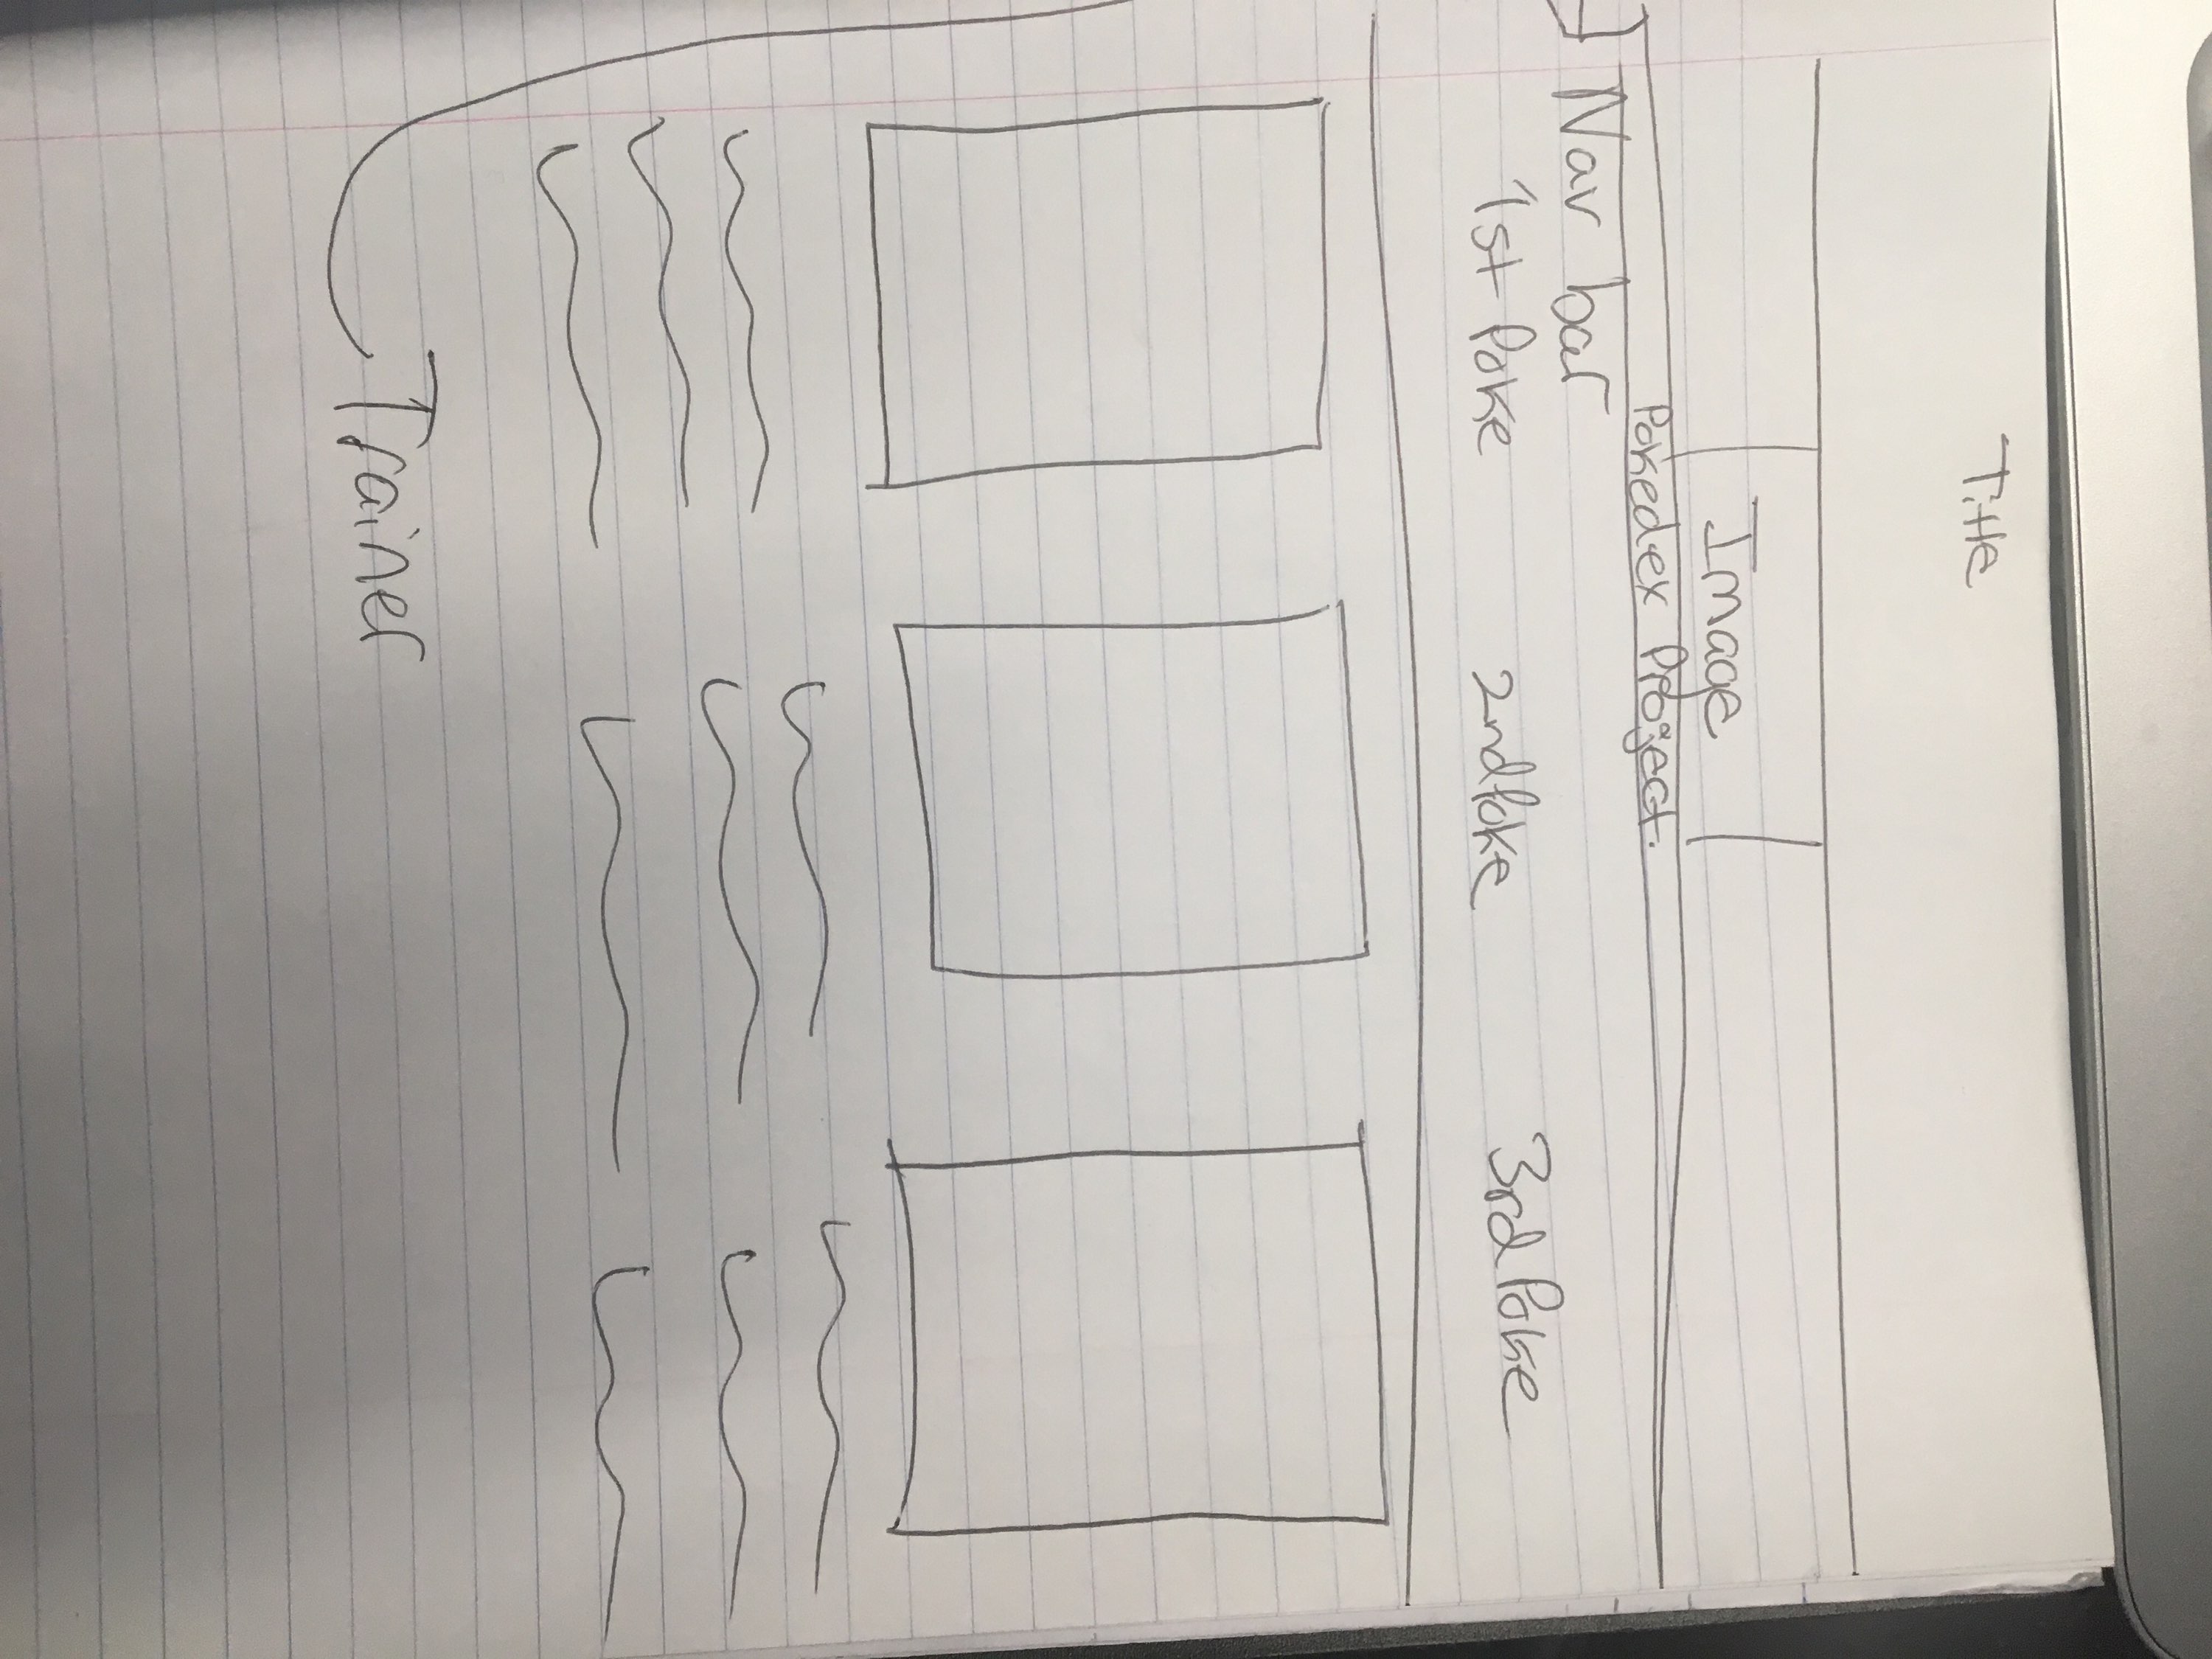 Title
Image
Pokedex Project.
Nav bar
1st Poke 2nd Poke 3rd Poke
Trainer